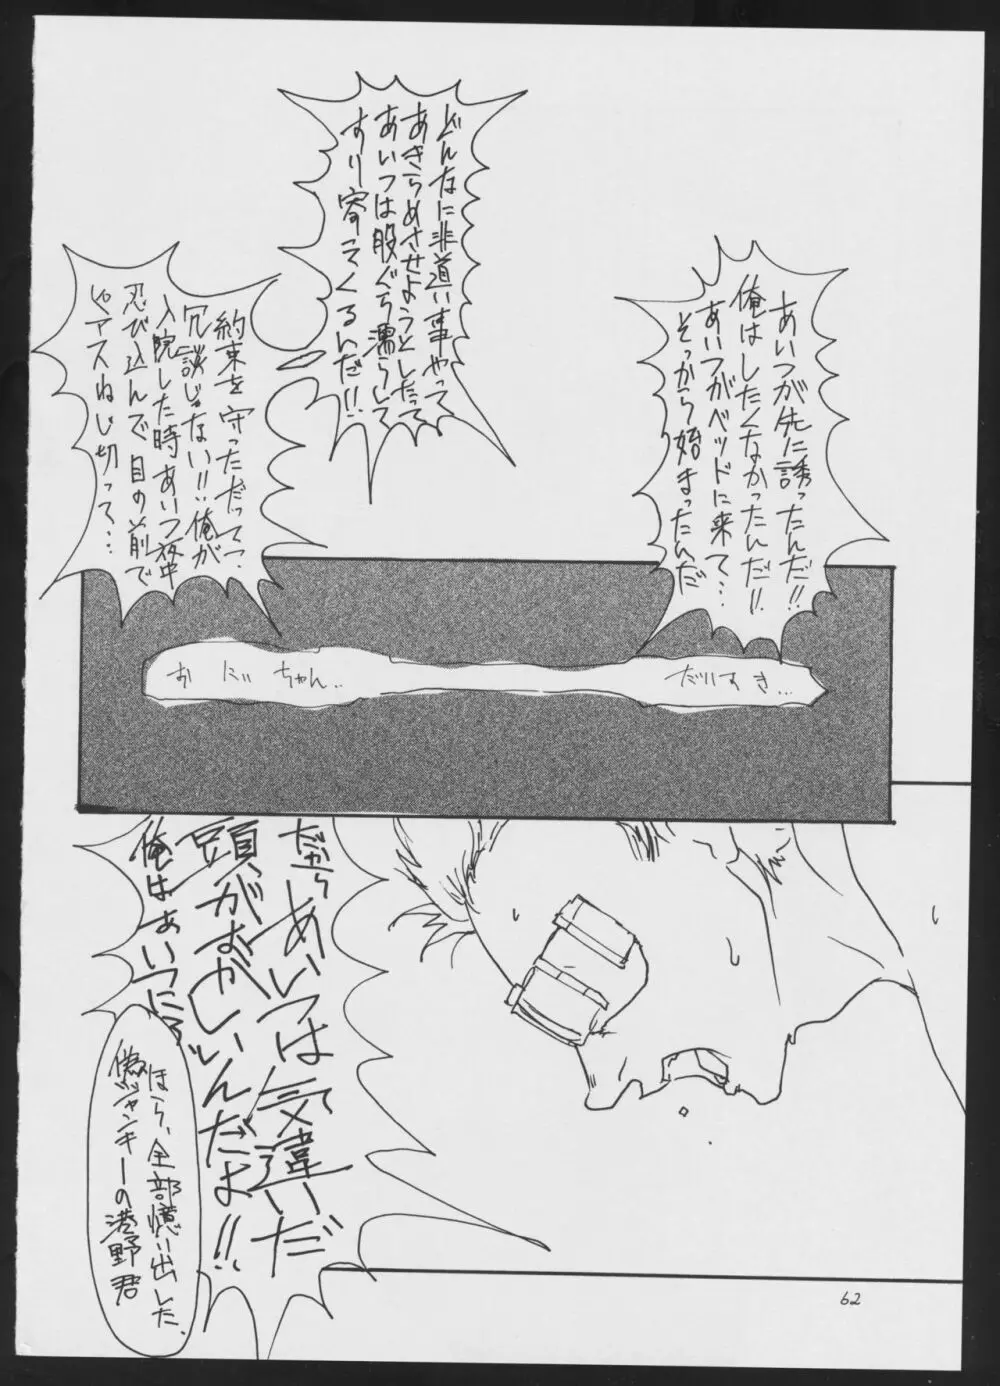 あいつが先に誘ったんだ!!
俺はしたくなかったんだ!!
あいつがベッドに来て…
そっから始まったんだ
どんなに非道い事やって
あきらめさせようとしたって
あいつは股ぐら濡らして
すり寄ってくるんだ!!
約束を守っただって?
冗談じゃない!!俺が
入院した時あいつ夜中
忍び込んで目の前で
ピアスねじ切って…
だいすき…
おにいちゃん..
だから
あいつは気違いだ
頭がおかしいんだよ!!
俺はあいつに
ほら、全部憶い出した、
偽ジャンキーの港野君
62